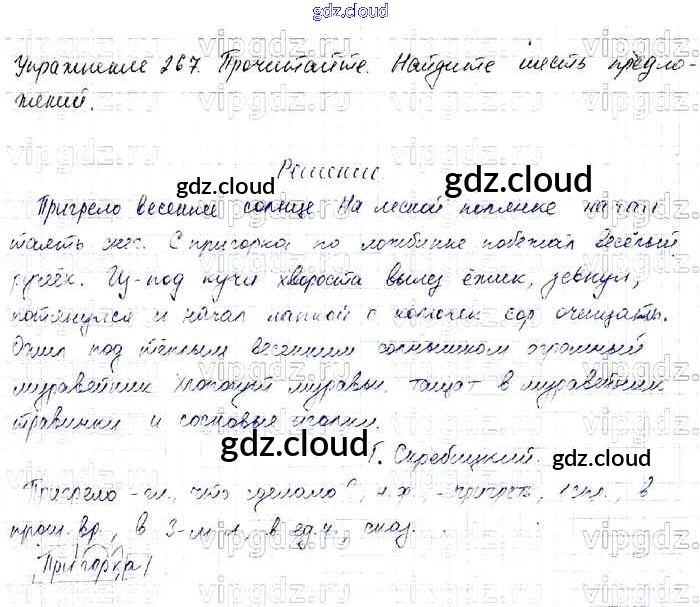 gdz.cloud
Упражнение 267. Прочитайте. Найдите шесть предло-
жений.
Решение
gdz.cloud
gdz.cloud
Пригрело весеннее солнце. На лесной полянке начал
таять снег. С пригорка по ложбинке побежал весёлый
ручеёк. Из-под кучи хвороста вылез ёжик, зевнул,
потянулся и начал лапкой с колючек сор очищать.
Ожил под тёплым весенним солнышком огромный
муравейник. Хлопочут муравьи. тащат в муравейник
травинки и сосновые иголки.
gdz.cloud
Г. Скребицкий.
Пригрело - гл., что сделало?, н.ф. - пригреть, 1 спр., в
прош. вр., в ед.ч., сказ.
gdz.cloud
Пригорка
vipgdz.ru